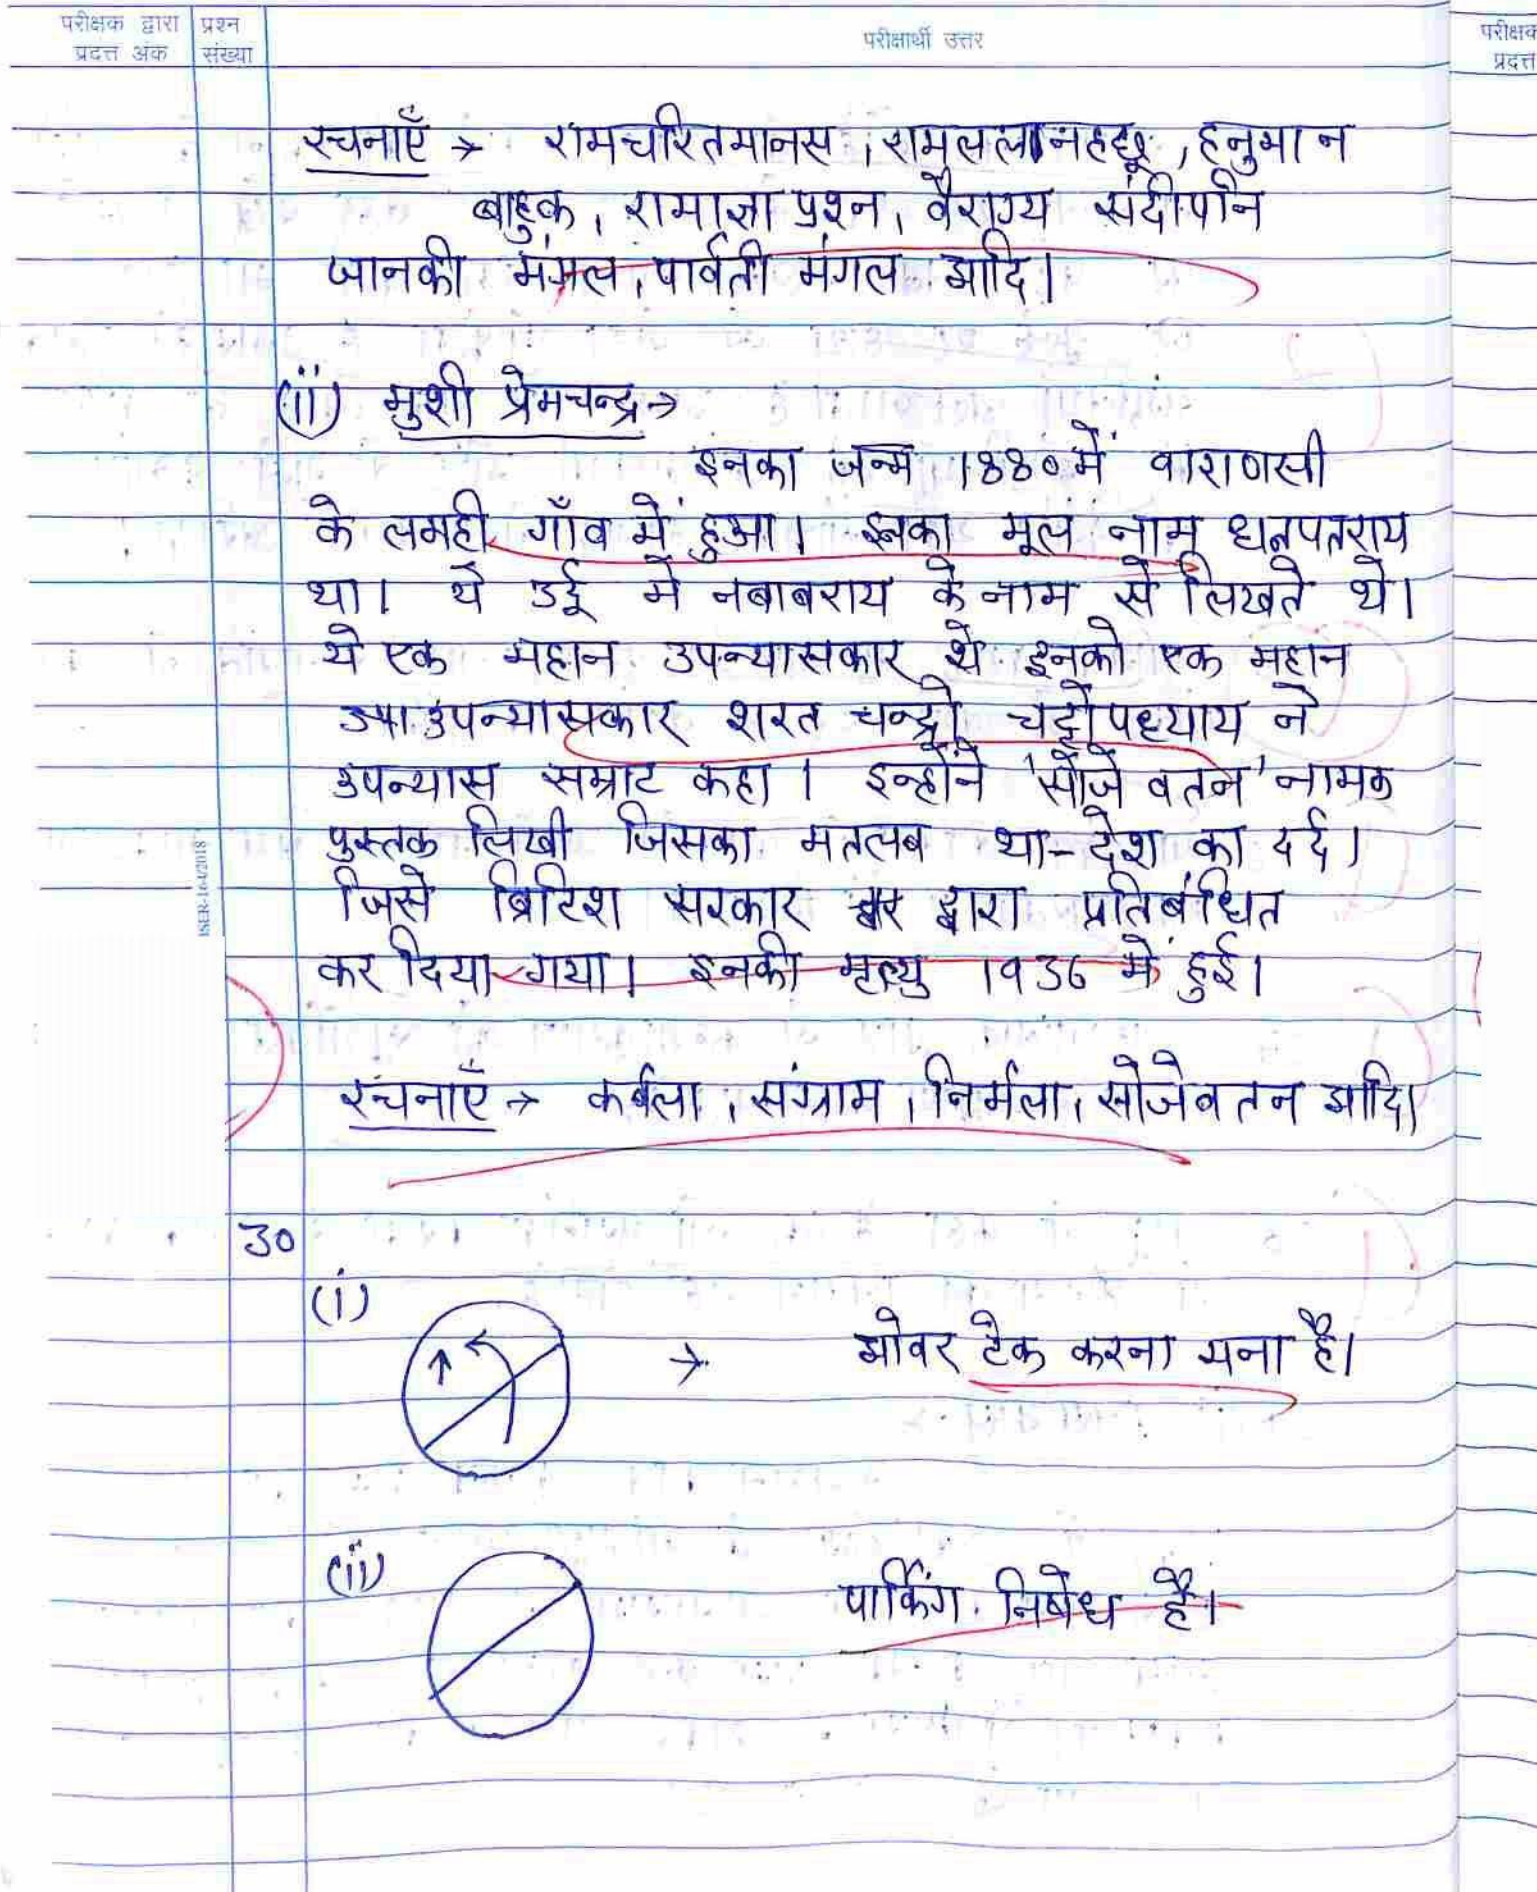 परीक्षक द्वारा प्रदत्त अंक
प्रश्न संख्या
परीक्षार्थी उत्तर
परीक्षक
प्रदत्त
रचनाएँ → रामचरितमानस, रामलला नहछू, हनुमान
बाहुक, रामाज्ञा प्रश्न, वैराग्य संदीपनि
जानकी मंगल, पार्वती मंगल आदि।
(ii) मुशी प्रेमचन्द्र →
इनका जन्म 1880 में वाराणसी
के लमही गाँव में हुआ। इनका मूल नाम धनपतराय
था। ये उर्दू में नबाबराय के नाम से लिखते थे।
ये एक महान उपन्यासकार थे इनको एक महान
उपन्यासकार शरत चन्द्रो चट्टोपध्याय ने
उपन्यास सम्राट कहा। इन्होंने 'सोजे वतन' नामक
पुस्तक लिखी जिसका मतलब था - देश का दर्द।
जिसे ब्रिटिश सरकार द्वारा प्रतिबंधित
कर दिया गया। इनकी मृत्यु 1936 में हुई।
रचनाएँ → कर्बला, संग्राम, निर्मला, सोजेवतन आदि।
ISER-164/2018
30
(i)
→ ओवर टेक करना मना है।
(ii)
पार्किंग निषेध है।